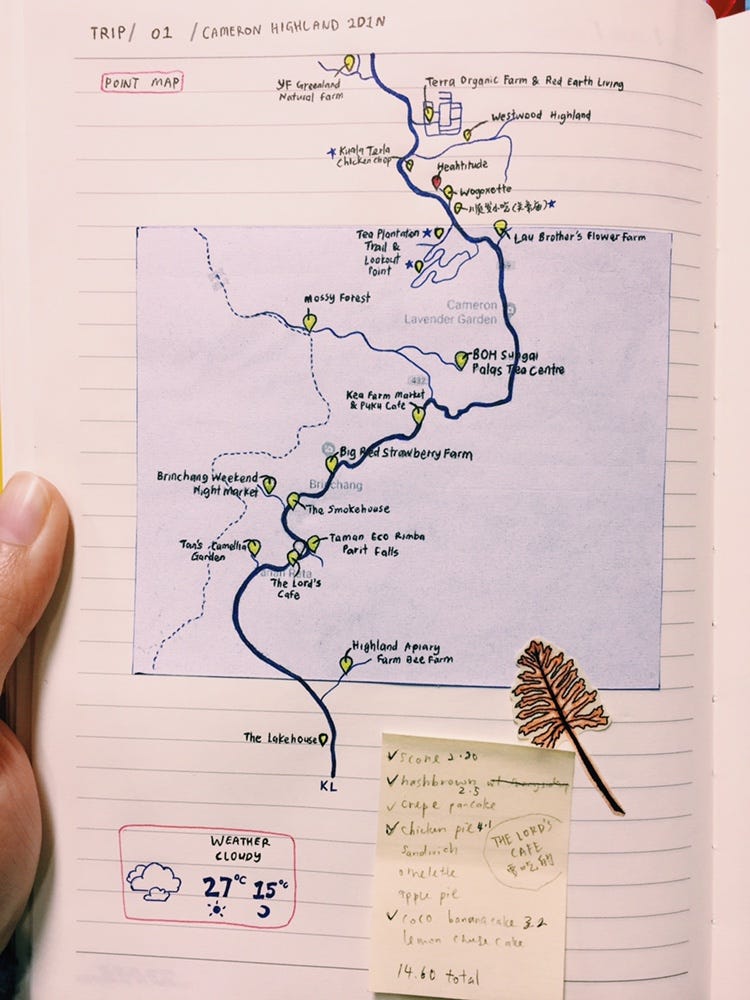 TRIP/ 01 /CAMERON HIGHLAND 2D1N
POINT MAP
YF Greenland
Natural Farm
Terra Organic Farm & Red Earth Living
Westwood Highland
★ Kuala Terla
Chicken chop
Heahtitude
Wogoxette
Lau Brother's Flower Farm
Tea Plantation ★
Trail &
Lookout
Point
★
Cameron
Lavender Garden
Mossy Forest
BOH Sungai
Palas Tea Centre
432
Kea Farm Market
& Puku Cafe
Big Red Strawberry Farm
Brinchang
Brinchang Weekend
Night Market
The Smokehouse
Taman Eco Rimba
Parit Falls
Tan's Camellia
Garden
The Lord's
Cafe
Highland Apiary
Farm Bee Farm
The Lakehouse
KL
WEATHER
CLOUDY
27°C 15°C
✓ scone 2.20
✓ hashbrown
2.5
✓ crepe pancake
✓ chicken pie 4.1
sandwich
omelette
apple pie
✓ coco banana cake 3.2
lemon chese cake
14.60 total
THE LORD'S
CAFE
要吃的